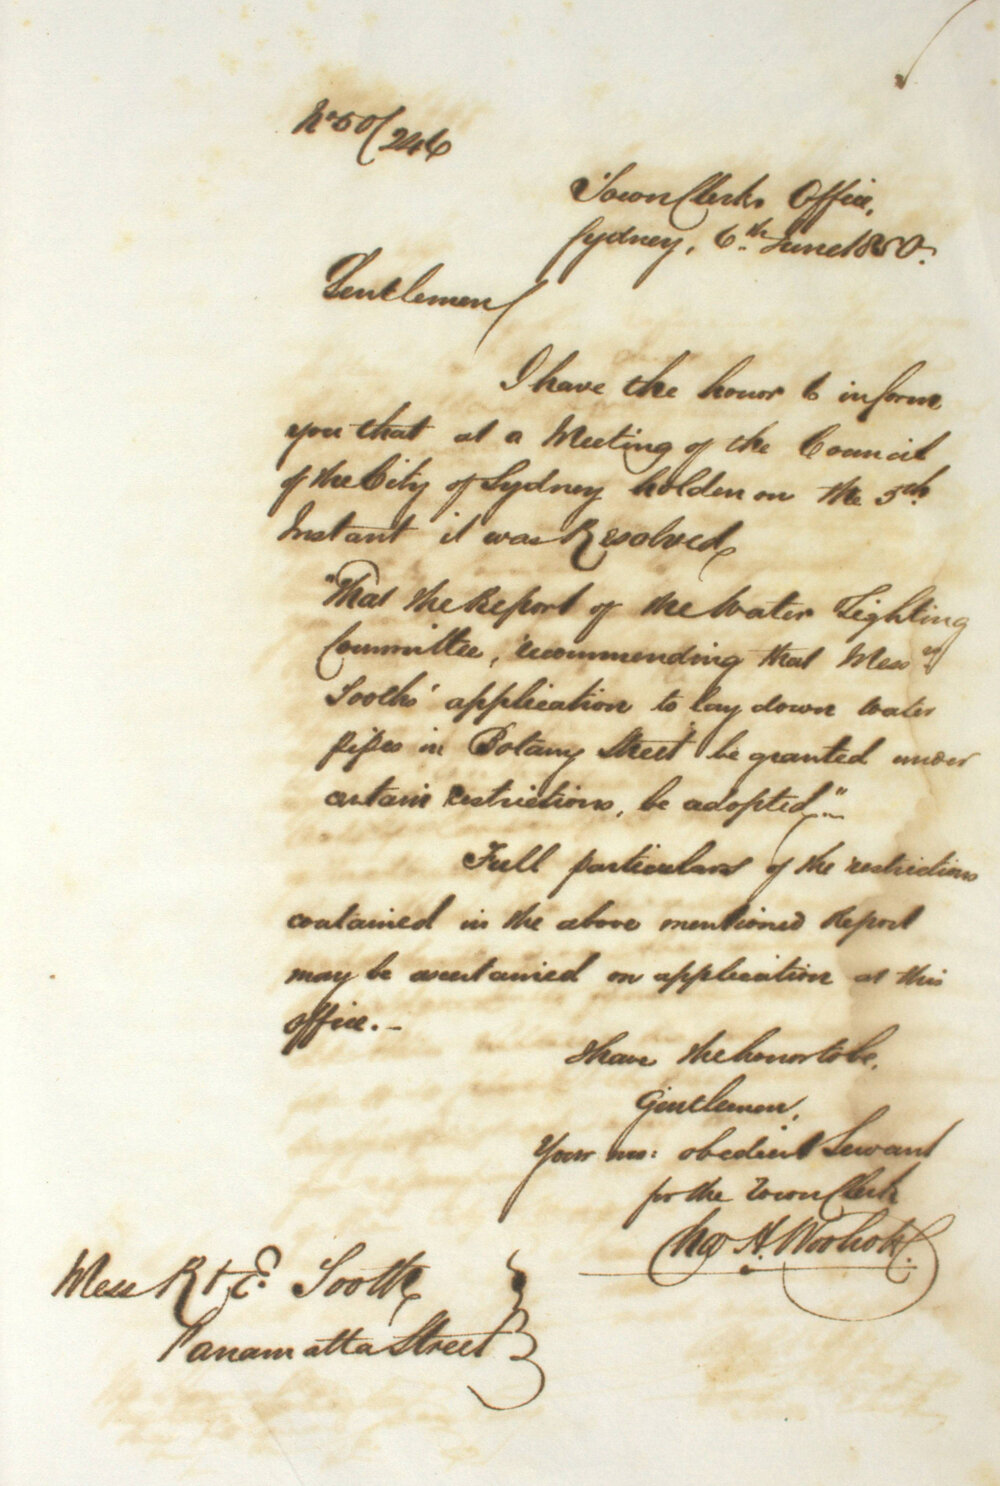 No 50/246
Town Clerks Office,
Sydney, 6th June 1850.
Gentlemen
I have the honor to inform
you that at a Meeting of the Council
of the City of Sydney holden on the 5th
Instant it was Resolved
"That the Report of the Water Lighting
Committee, recommending that Messrs
Tooths' application to lay down water
pipes in Botany Street be granted under
certain restrictions, be adopted."
Full particulars of the restrictions
contained in the above mentioned Report
may be ascertained on application at this
office. -
I have the honor to be,
Gentlemen,
Your mo: obedient Servant
for the Town Clerk
A.
Mess R & E. Tooth
Parramatta Street